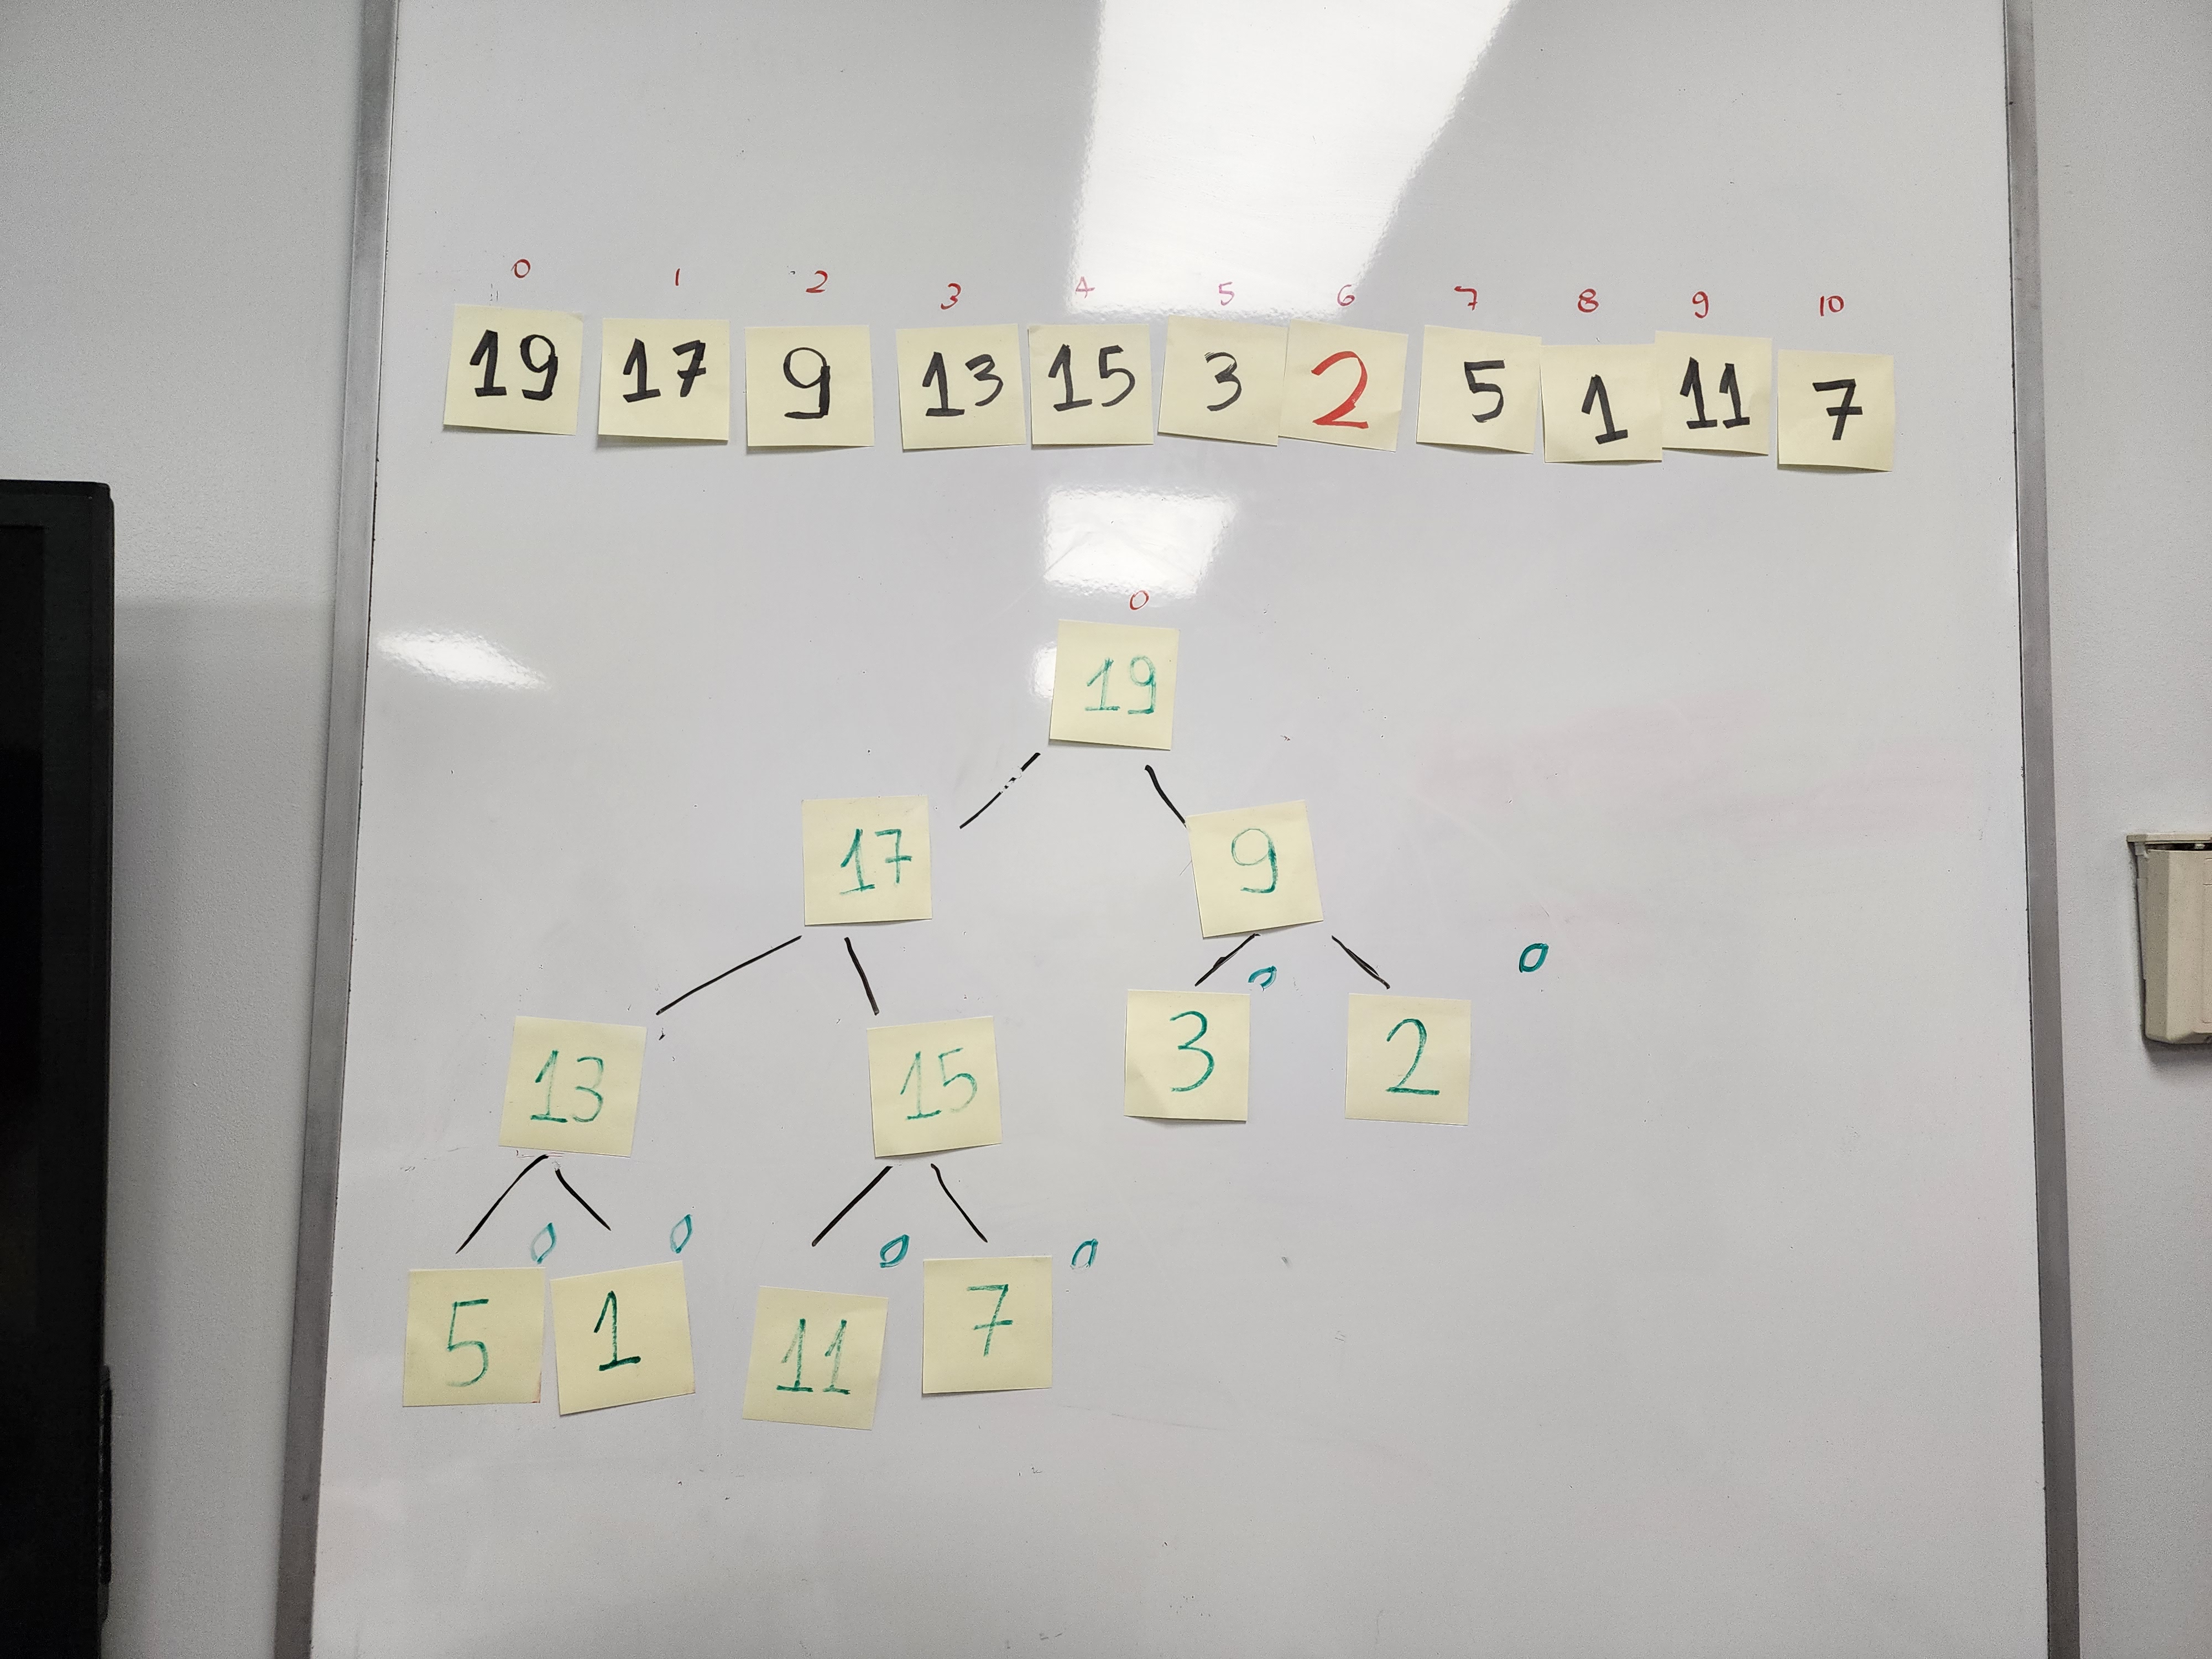 0 1 2 3 4 5 6 7 8 9 10
19 17 9 13 15 3 2 5 1 11 7
0
19
17 9
0 0
13 15 3 2
0 0 0 0
5 1 11 7